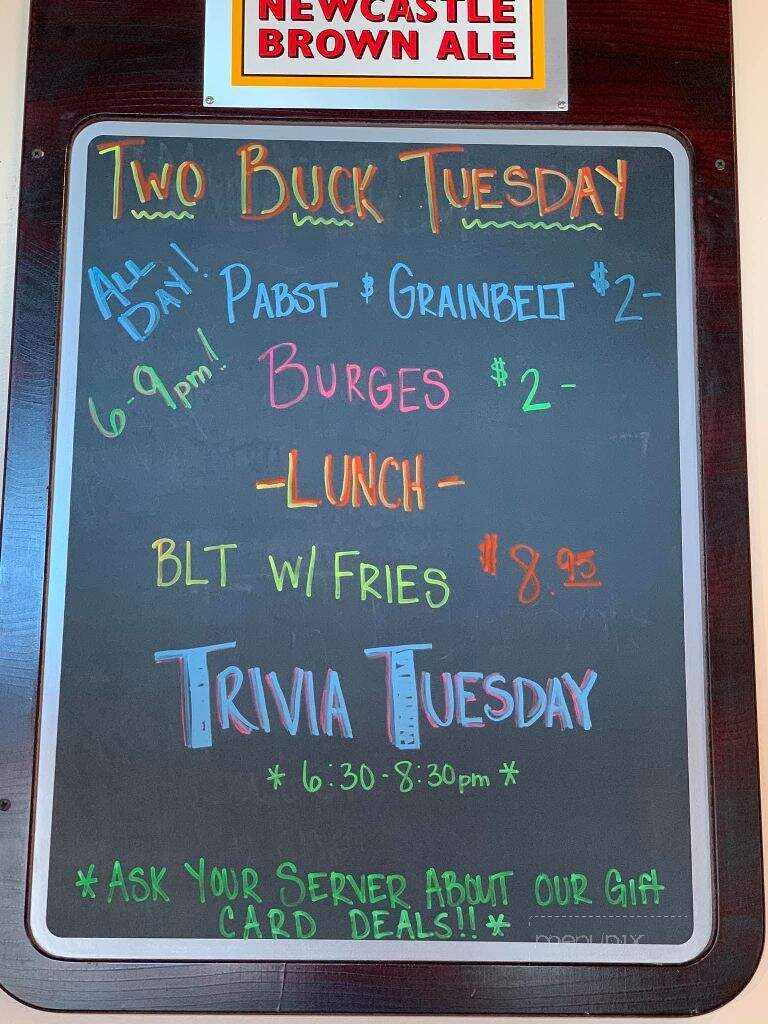 NEWCASTLE
BROWN ALE
TWO BUCK TUESDAY
ALL DAY! PABST & GRAINBELT $2-
6-9pm!! BURGES $2-
-LUNCH-
BLT W/ FRIES $8.95
TRIVIA TUESDAY
* 6:30-8:30pm *
* ASK YOUR SERVER ABOUT OUR GIFT
CARD DEALS!! *
menupix